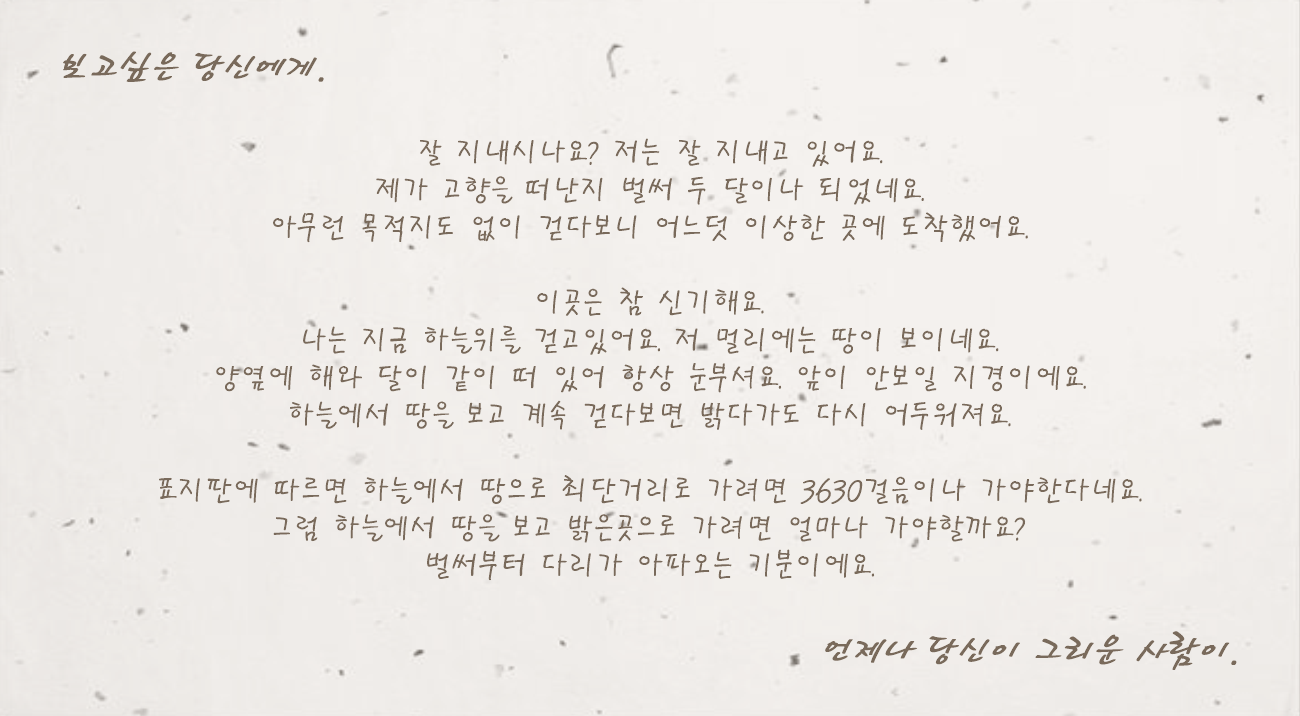 보고싶은 당신에게.
잘 지내시나요? 저는 잘 지내고 있어요.
제가 고향을 떠난지 벌써 두 달이나 되었네요.
아무런 목적지도 없이 걷다보니 어느덧 이상한 곳에 도착했어요.
이곳은 참 신기해요.
나는 지금 하늘위를 걷고있어요. 저 멀리에는 땅이 보이네요.
양옆에 해와 달이 같이 떠 있어 항상 눈부셔요. 앞이 안보일 지경이에요.
하늘에서 땅을 보고 계속 걷다보면 밝다가도 다시 어두워져요.
표지판에 따르면 하늘에서 땅으로 최단거리로 가려면 3630걸음이나 가야한다네요.
그럼 하늘에서 땅을 보고 밝은곳으로 가려면 얼마나 가야할까요?
벌써부터 다리가 아파오는 기분이에요.
언제나 당신이 그리운 사람이.